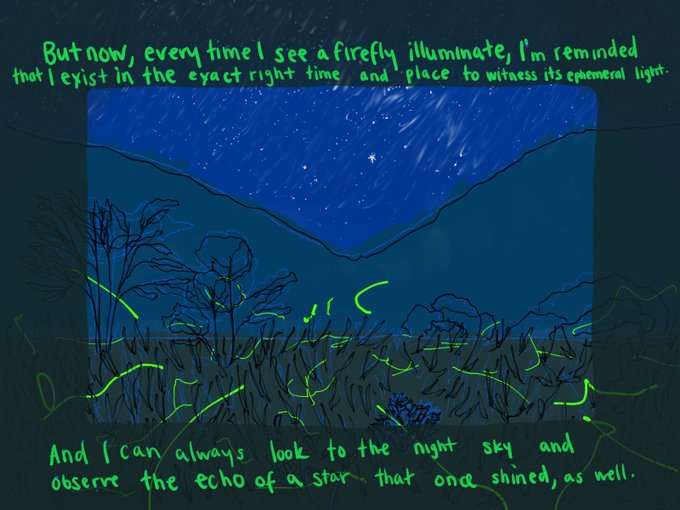 But now, every time I see a firefly illuminate, I'm reminded
that I exist in the exact right time and place to witness its ephemeral light.
And I can always look to the night sky and
observe the echo of a star that once shined, as well.